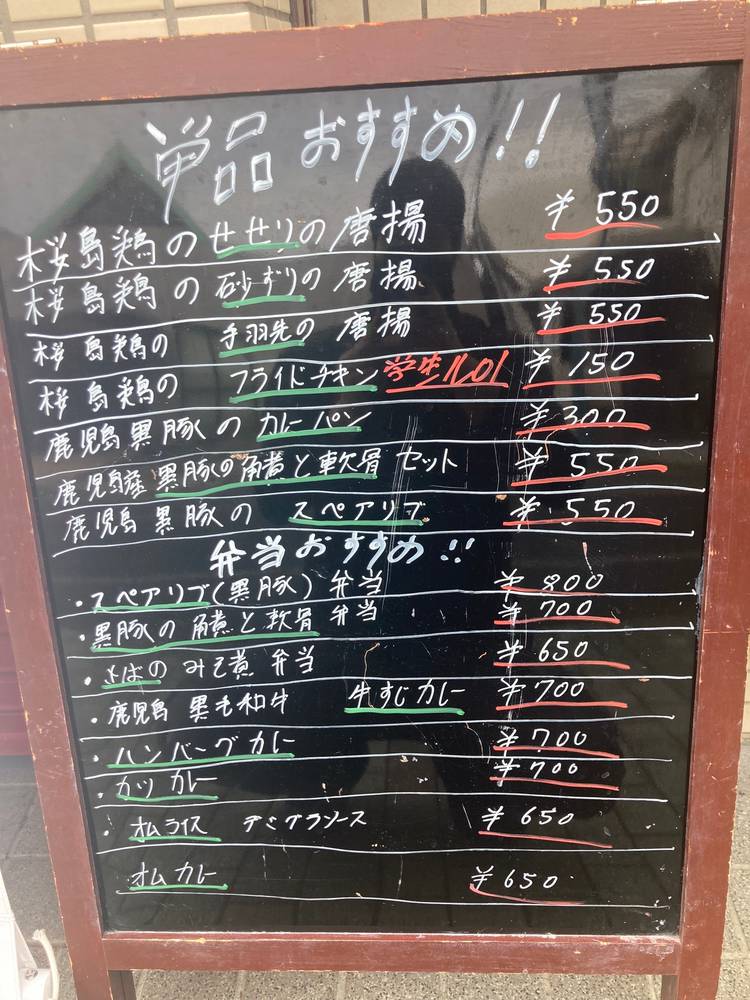 単品おすすめ!!
桜島鶏のせせりの唐揚 ¥550
桜島鶏の砂ずりの唐揚 ¥550
桜島鶏の手羽先の唐揚 ¥550
桜島鶏のフライドチキン ¥150
鹿児島黒豚のカレーパン ¥300
鹿児島産黒豚の角煮と軟骨セット ¥550
鹿児島黒豚のスペアリブ ¥550
弁当おすすめ!!
・スペアリブ(黒豚)弁当 ¥800
・黒豚の角煮と軟骨弁当 ¥700
・さばのみそ煮弁当 ¥650
・鹿児島黒毛和牛 牛すじカレー ¥700
・ハンバーグカレー ¥700
・カツカレー ¥700
・オムライス デミグラソース ¥650
オムカレー ¥650